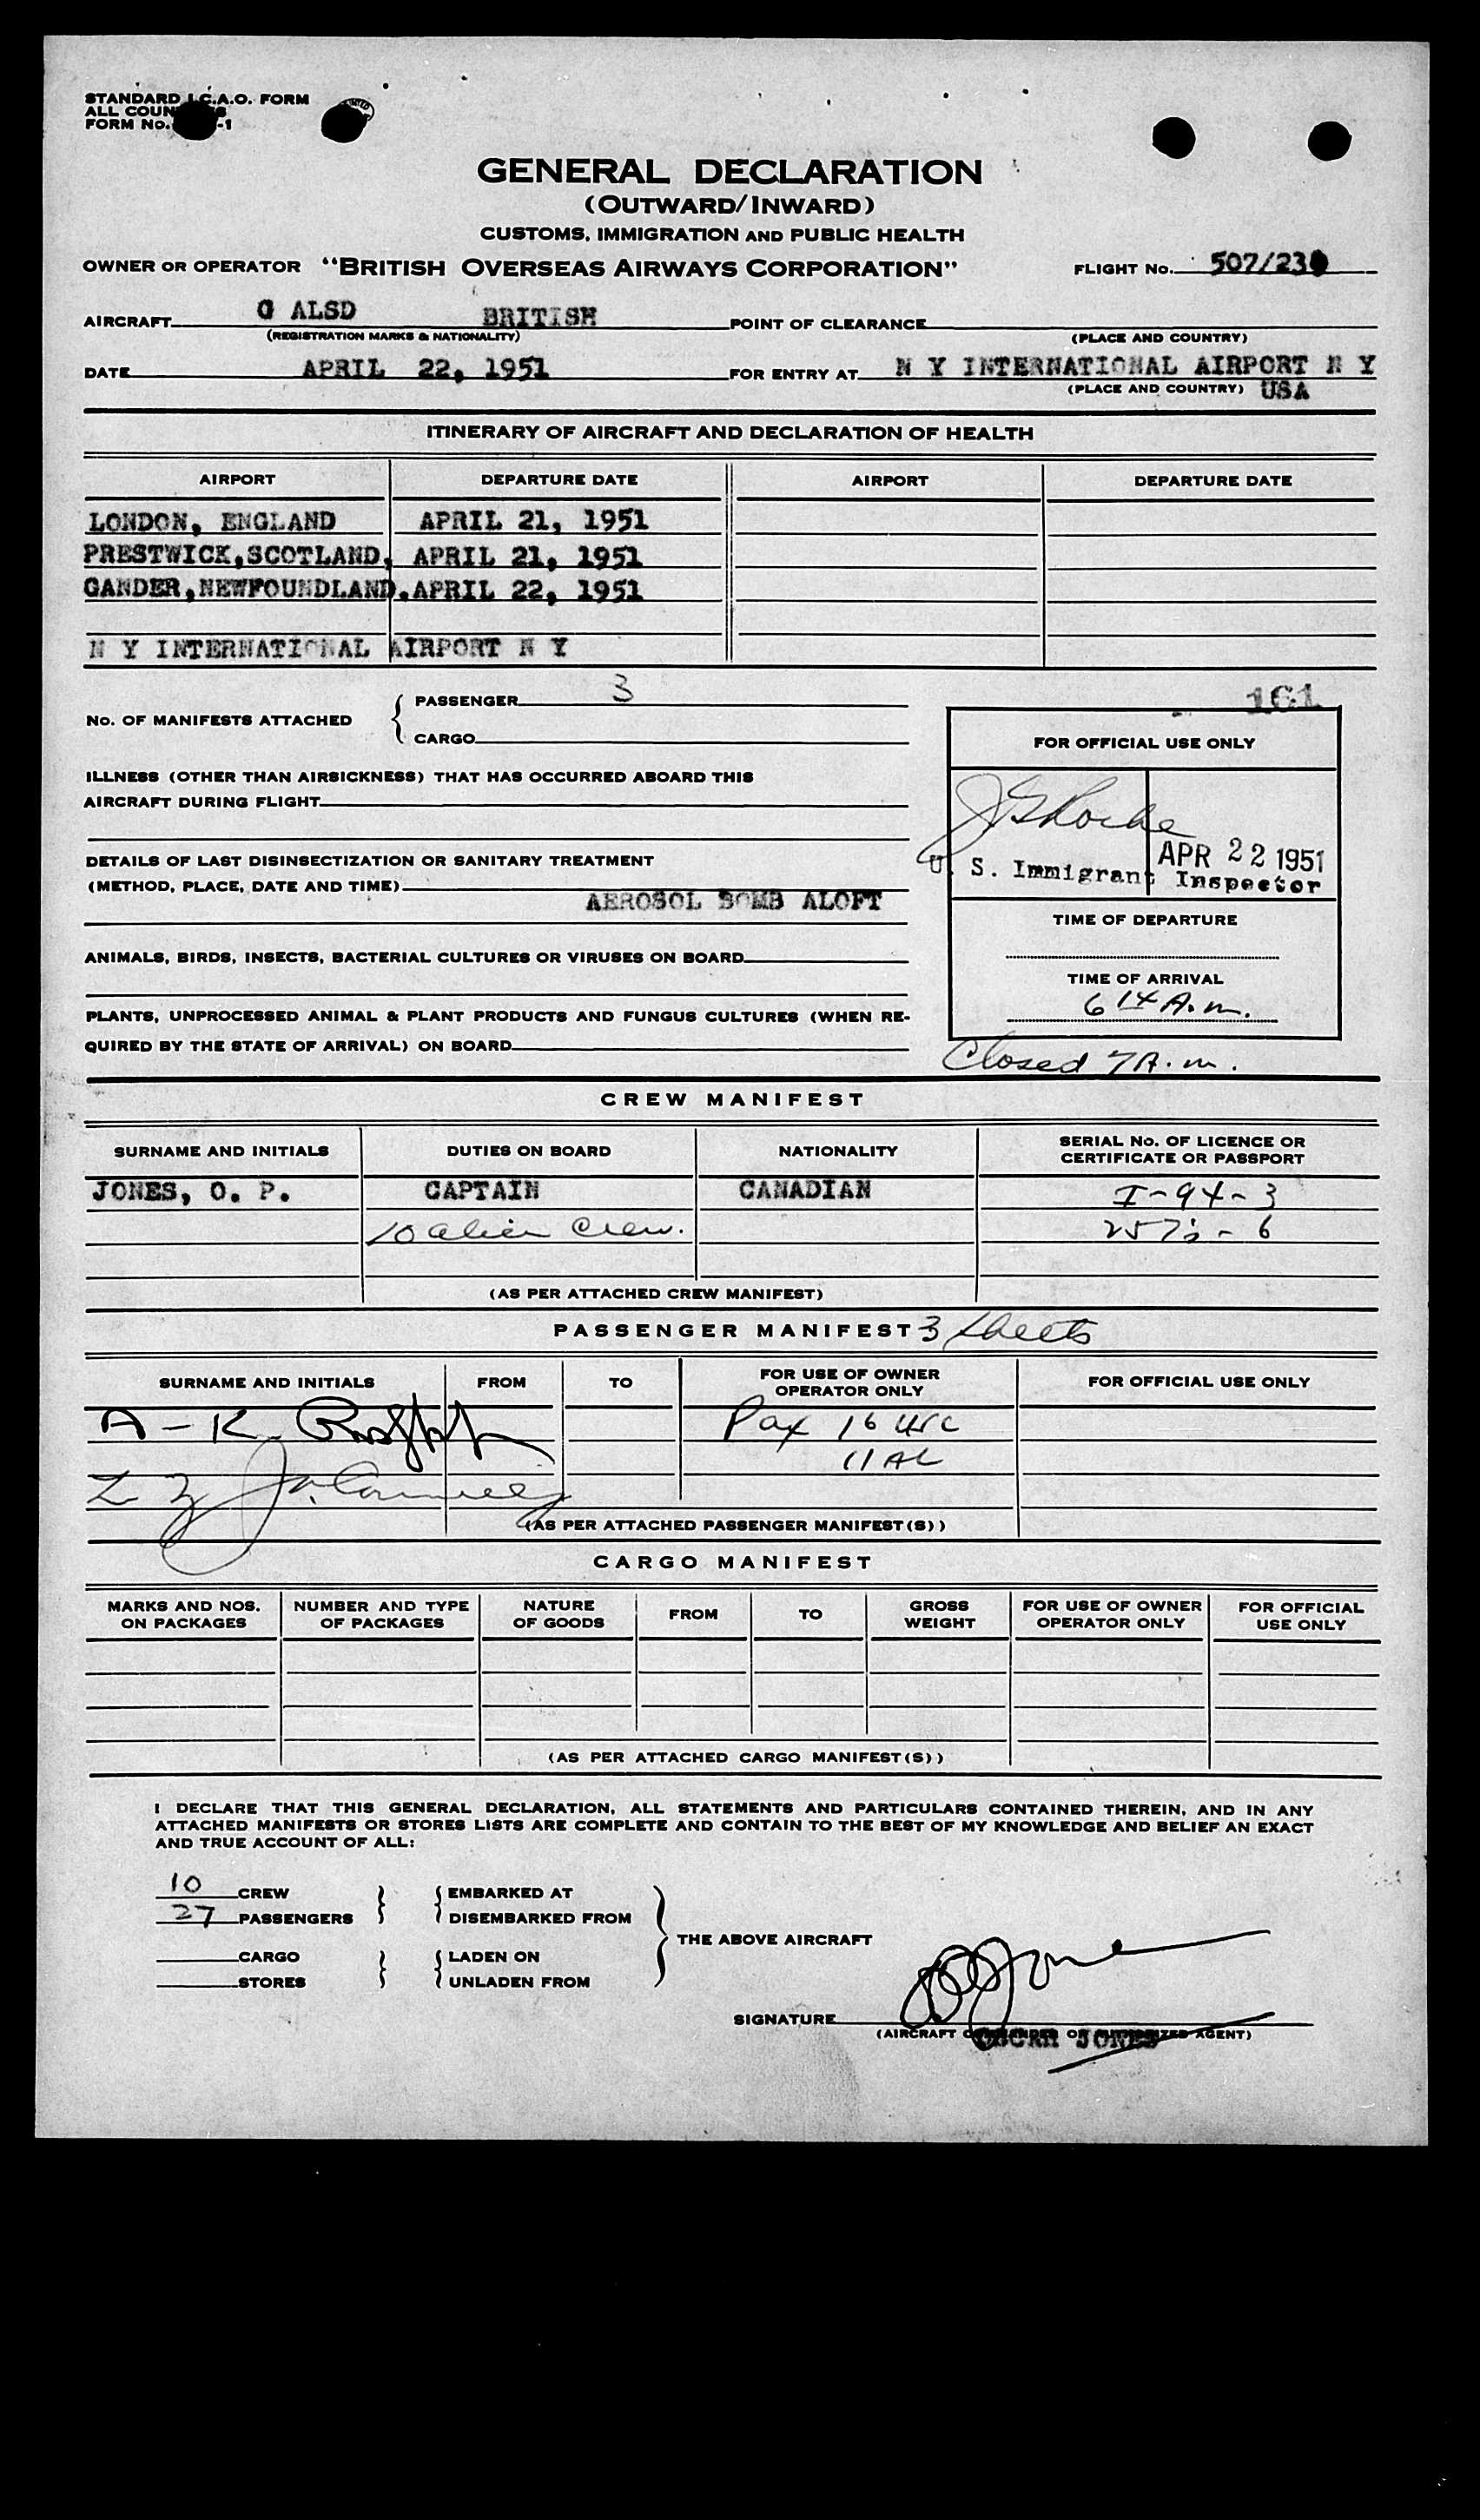 STANDARD I.C.A.O. FORM
ALL
FORM No. -1
GENERAL DECLARATION
(OUTWARD/INWARD)
CUSTOMS, IMMIGRATION AND PUBLIC HEALTH
OWNER OR OPERATOR "BRITISH OVERSEAS AIRWAYS CORPORATION" FLIGHT No. 507/23
AIRCRAFT G ALSD BRITISH POINT OF CLEARANCE
(REGISTRATION MARKS & NATIONALITY) (PLACE AND COUNTRY)
DATE APRIL 22, 1951 FOR ENTRY AT N Y INTERNATIONAL AIRPORT N Y
(PLACE AND COUNTRY) USA
ITINERARY OF AIRCRAFT AND DECLARATION OF HEALTH
AIRPORT DEPARTURE DATE AIRPORT DEPARTURE DATE
LONDON, ENGLAND APRIL 21, 1951
PRESTWICK,SCOTLAND, APRIL 21, 1951
GANDER,NEWFOUNDLAND.APRIL 22, 1951
N Y INTERNATIONAL AIRPORT N Y
161
PASSENGER 3
No. OF MANIFESTS ATTACHED
CARGO
FOR OFFICIAL USE ONLY
ILLNESS (OTHER THAN AIRSICKNESS) THAT HAS OCCURRED ABOARD THIS
AIRCRAFT DURING FLIGHT
DETAILS OF LAST DISINSECTIZATION OR SANITARY TREATMENT
(METHOD, PLACE, DATE AND TIME)
AEROSOL BOMB ALOFT
APR 22 1951
U. S. Immigrant Inspector
TIME OF DEPARTURE
ANIMALS, BIRDS, INSECTS, BACTERIAL CULTURES OR VIRUSES ON BOARD
TIME OF ARRIVAL
6 14 A.m.
PLANTS, UNPROCESSED ANIMAL & PLANT PRODUCTS AND FUNGUS CULTURES (WHEN RE-
QUIRED BY THE STATE OF ARRIVAL) ON BOARD
Closed 7 A.m.
CREW MANIFEST
SURNAME AND INITIALS DUTIES ON BOARD NATIONALITY SERIAL No. OF LICENCE OR
CERTIFICATE OR PASSPORT
JONES, O. P. CAPTAIN CANADIAN I-94-3
10 alien crew. 257's - 6
(AS PER ATTACHED CREW MANIFEST)
PASSENGER MANIFEST 3 sheets
SURNAME AND INITIALS FROM TO FOR USE OF OWNER
OPERATOR ONLY FOR OFFICIAL USE ONLY
A - K Pax 16 USC
11 AL
L Z
(AS PER ATTACHED PASSENGER MANIFEST(S))
CARGO MANIFEST
MARKS AND NOS.
ON PACKAGES NUMBER AND TYPE
OF PACKAGES NATURE
OF GOODS FROM TO GROSS
WEIGHT FOR USE OF OWNER
OPERATOR ONLY FOR OFFICIAL
USE ONLY
(AS PER ATTACHED CARGO MANIFEST(S))
I DECLARE THAT THIS GENERAL DECLARATION, ALL STATEMENTS AND PARTICULARS CONTAINED THEREIN, AND IN ANY
ATTACHED MANIFESTS OR STORES LISTS ARE COMPLETE AND CONTAIN TO THE BEST OF MY KNOWLEDGE AND BELIEF AN EXACT
AND TRUE ACCOUNT OF ALL:
10 CREW EMBARKED AT
27 PASSENGERS DISEMBARKED FROM
THE ABOVE AIRCRAFT
CARGO LADEN ON
STORES UNLADEN FROM
SIGNATURE O P Jones
(AIRCRAFT COMMANDER OR AUTHORIZED AGENT)
JONES